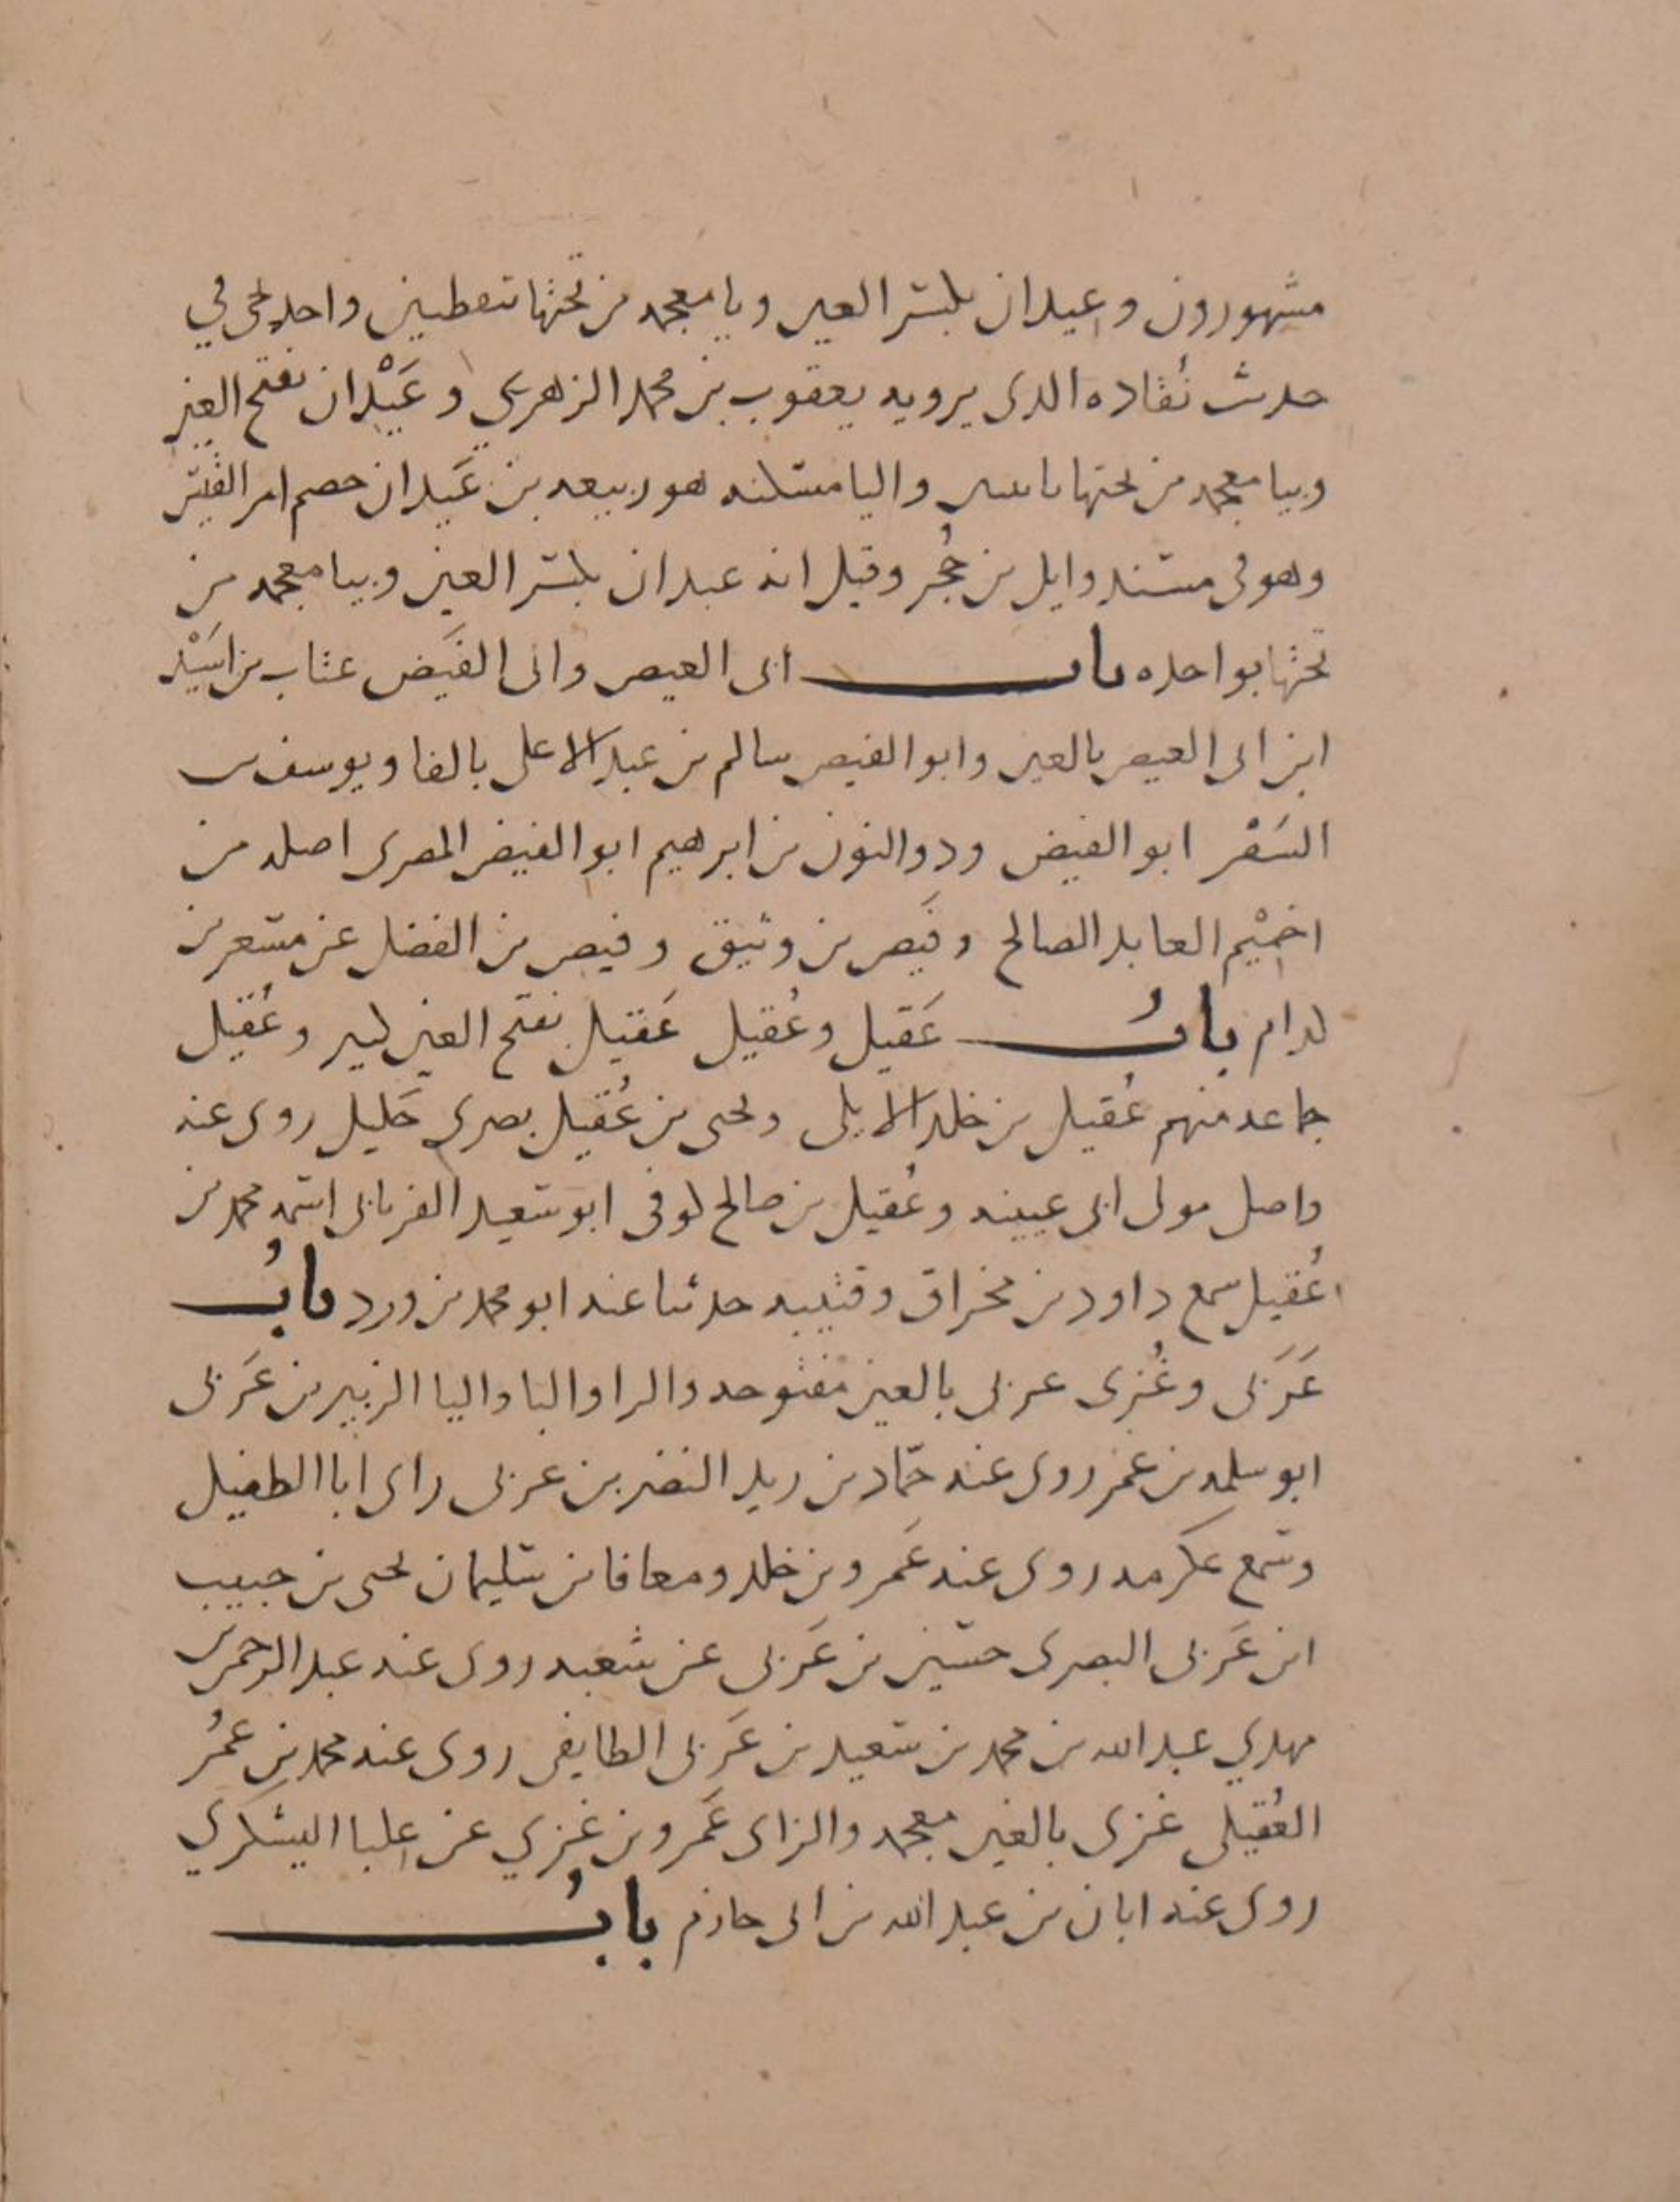 مشهورون وعيدان بكسر العين ويا معجمه من تحتها نقطتين واحد يجي في
حدث نُقاده الذي يرويه يعقوب بن محمد الزهري وعَيْدان بفتح العين
وبيا معجمه من تحتها باثنتين واليا مسكنه هو ربيعه بن عَيدان خصم امر القيس
وهو في مسند وايل بن حُجر وقيل انه عبدان بكسر العين وبيا معجمه من
تحتها بواحده باب ابى العيص وابى الفَيض عتاب بن اسَيْد
ابن ابى العيص بالعين وابو الفيض سالم بن عبد الاعلى بالفا ويوسف بن
السَفْر ابو الفيض وذو النون بن ابرهيم ابو الفيض المصرى اصله من
اخميْم العابد الصالح وفَيض بن وثيق وفيض بن الفضل عن مسعر بن
كدام بابُ عَقيل وعُقيل عَقيل بفتح العين كثير وعُقيل
جماعه منهم عُقيل بن خلد الايلى ويحيى بن عُقيل بصرى جَليل روى عنه
واصل مولى ابى عيينه وعُقيل بن صالح كوفى ابو سعيد الفريابى اسمه محمد بن
عُقيل سمع داود بن مخراق وقتيبه حدثنا عنه ابو محمد بن ورد بابُ
عَرَبى وغُزى عربى بالعين مفتوحه والرا والبا واليا الزبير بن عَرَبى
ابو سلمه بن عمر روى عنه حمّاد بن زيد النضر بن عربى راى ابا الطفيل
وسمع عكرمه روى عنه عَمرو بن خلد ومعافا بن سليمان يحيى بن حبيب
ابن عَرَبى البصرى حسين بن عَرَبى عن شعبه روى عنه عبد الرحمن بن
مهدي عبد الله بن محمد بن سعيد بن عَرَبى الطايفى روى عنه محمد بن عُمُر
العُقيلى غزى بالغين معجمه والزاى عَمرو بن غُزي عن عِلبا اليشكري
روى عنه ابان بن عبد الله بن ابى حازم بابُ